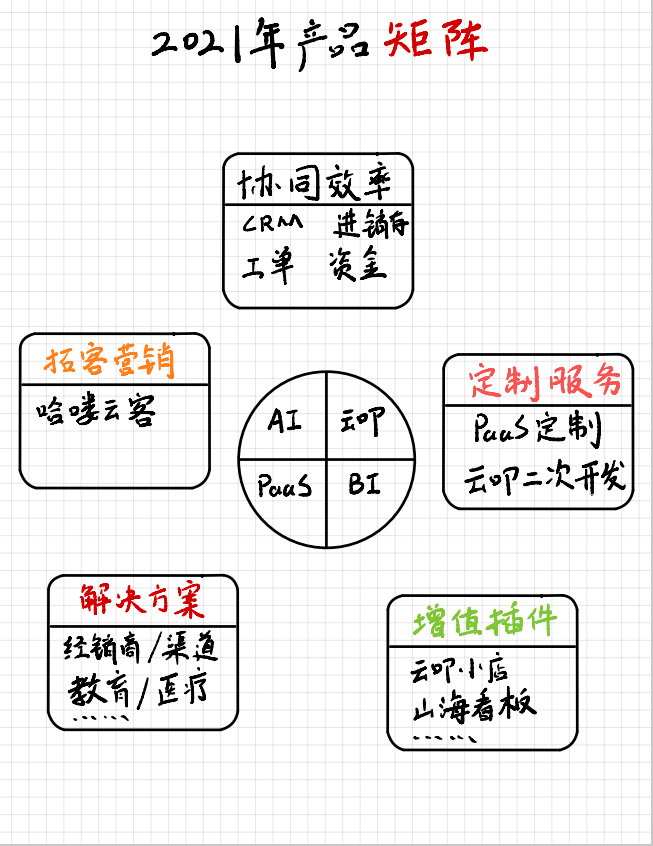 2021年产品矩阵
协同效率
CRM 进销存
工单 资金
拓客营销
哈喽云客
AI 云叩
PaaS BI
定制服务
PaaS定制
云叩二次开发
解决方案
经销商/渠道
教育/医疗
……
增值插件
云叩小店
山海看板
……